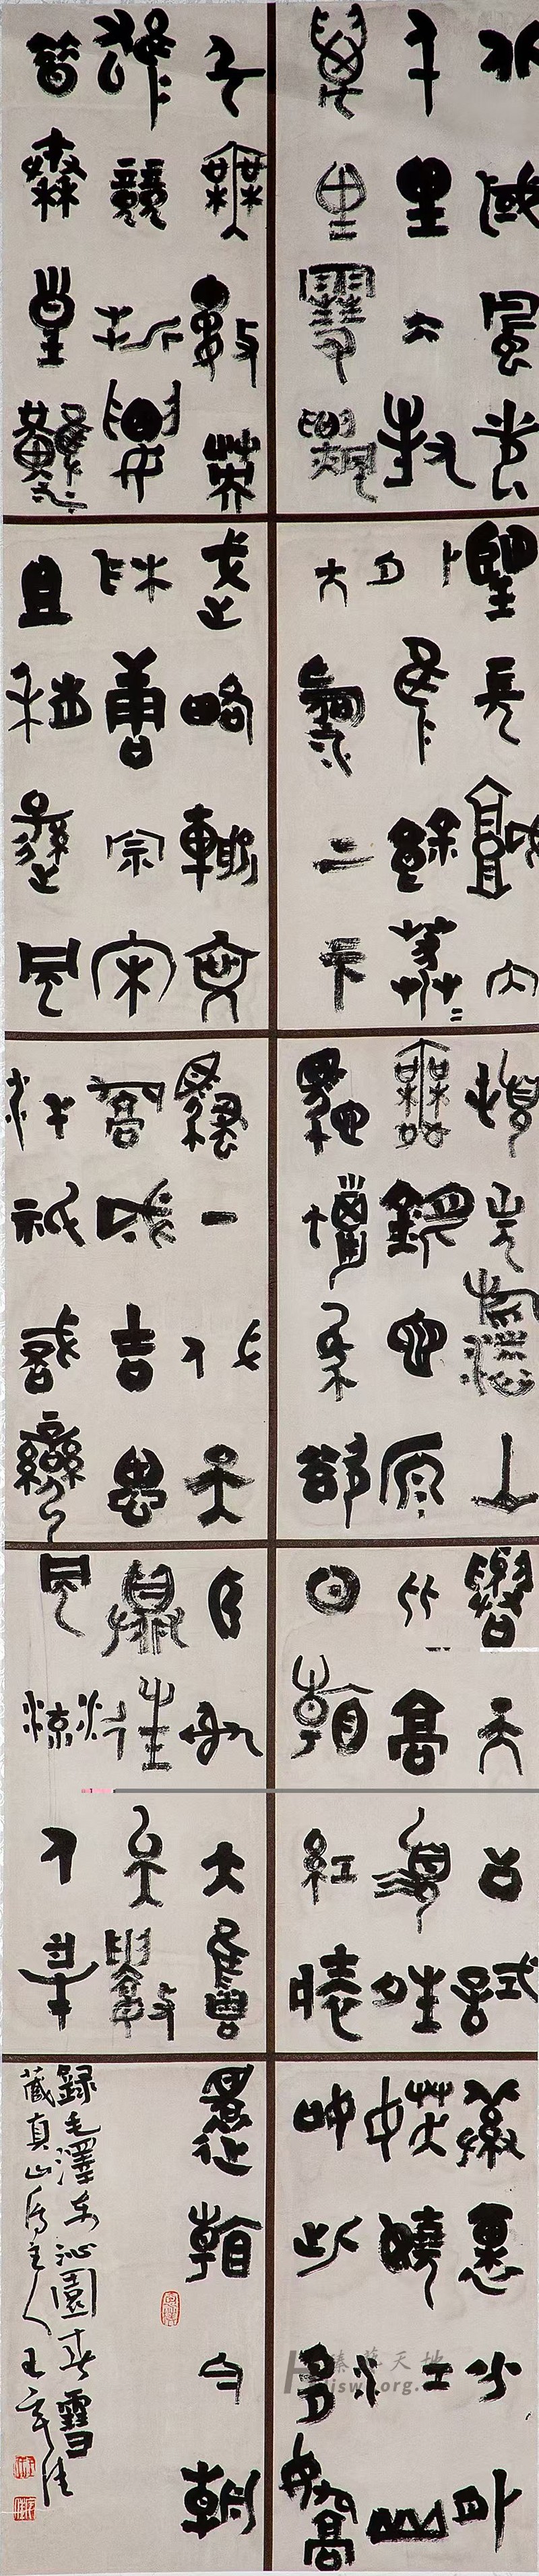 北國風光
千里冰封
萬里雪飄
引無數英
雄競折腰
惜秦皇漢
望長城內
外惟餘莽莽
大河上下
武略輸文
采唐宗宋
祖稍遜風
頓失滔滔山
舞銀蛇原
馳蠟象欲
騷一代天
驕成吉思
汗只識彎
與天公試
比高須晴
日看紅裝
弓射大雕
俱往矣數
風流人物
素裹分外
妖嬈江山
如此多嬌
還看今朝
錄毛澤東沁園春雪
藏真山房主人王